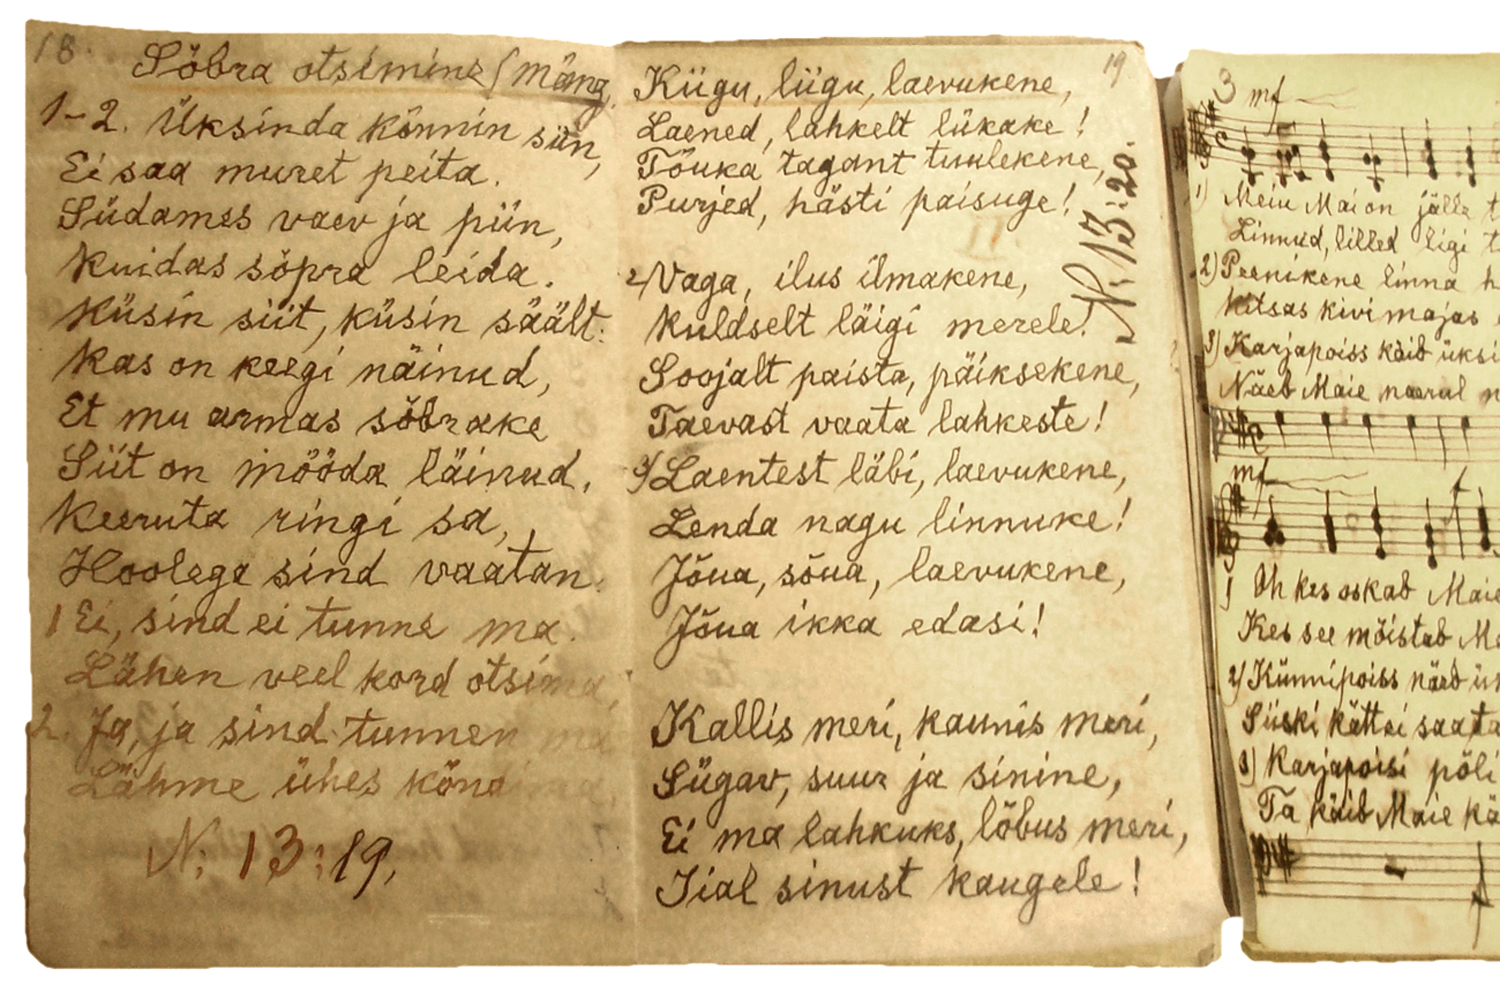 18.
Sõbra otsimine (mäng).
1-2. Üksinda kõnnin siin,
Ei saa muret peita.
Südames vaev ja piin,
Kuidas sõpra leida.
Küsin siit, küsin säält:
Kas on keegi näinud,
Et mu armas sõbrake
Siit on mööda läinud,
Keeruta ringi sa,
Hoolega sind vaatan.
1 Ei, sind ei tunne ma.
Lähen veel kord otsima
2. Ja, ja sind tunnen ma
Lähme ühes kõndima,
N: 13:19,
19
Kiigu, liigu, laevukene,
Laened, lahkelt lükake!
Tõuka tagant tuulekene,
Purjed, hästi paisuge!
2) Vaga, ilus ilmakene,
Kuldselt läigi merele!
Soojalt paista, päiksekene,
Taevast vaata lahkeste!
3) Laentest läbi, laevukene,
Lenda nagu linnuke!
Jõua, sõua, laevukene,
Jõua ikka edasi!
Kallis meri, kaunis meri,
Sügav, suur ja sinine,
Ei ma lahkuks, lõbus meri,
Iial sinust kaugele!
N: 13:20.
3 mf
1) Meiu Mai on jälle
Linnud, lilled ligi
2) Peenikene linna
Kitsas kivi majas
3) Karjapoiss käib üksi
Näeb Maie naeral
mf f
1 Oh kes oskab Maie
Kes see mõistab
2) Künnipoiss näeb
Siiski kätt ei saata
3) Karjapoisi põli
Ta käib Maie